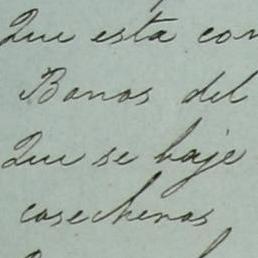 Que esta con
Bonos del
Que se baje
cosecheros